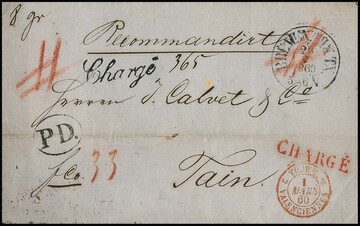 8 gr
Recommandirt
Chargé
365
BREMEN TH. & TX.
Herren J. Calvet & Co
P.D.
fCo. 33
CHARGÉ
Tain.
1
MARS
60
VALENCIENNES